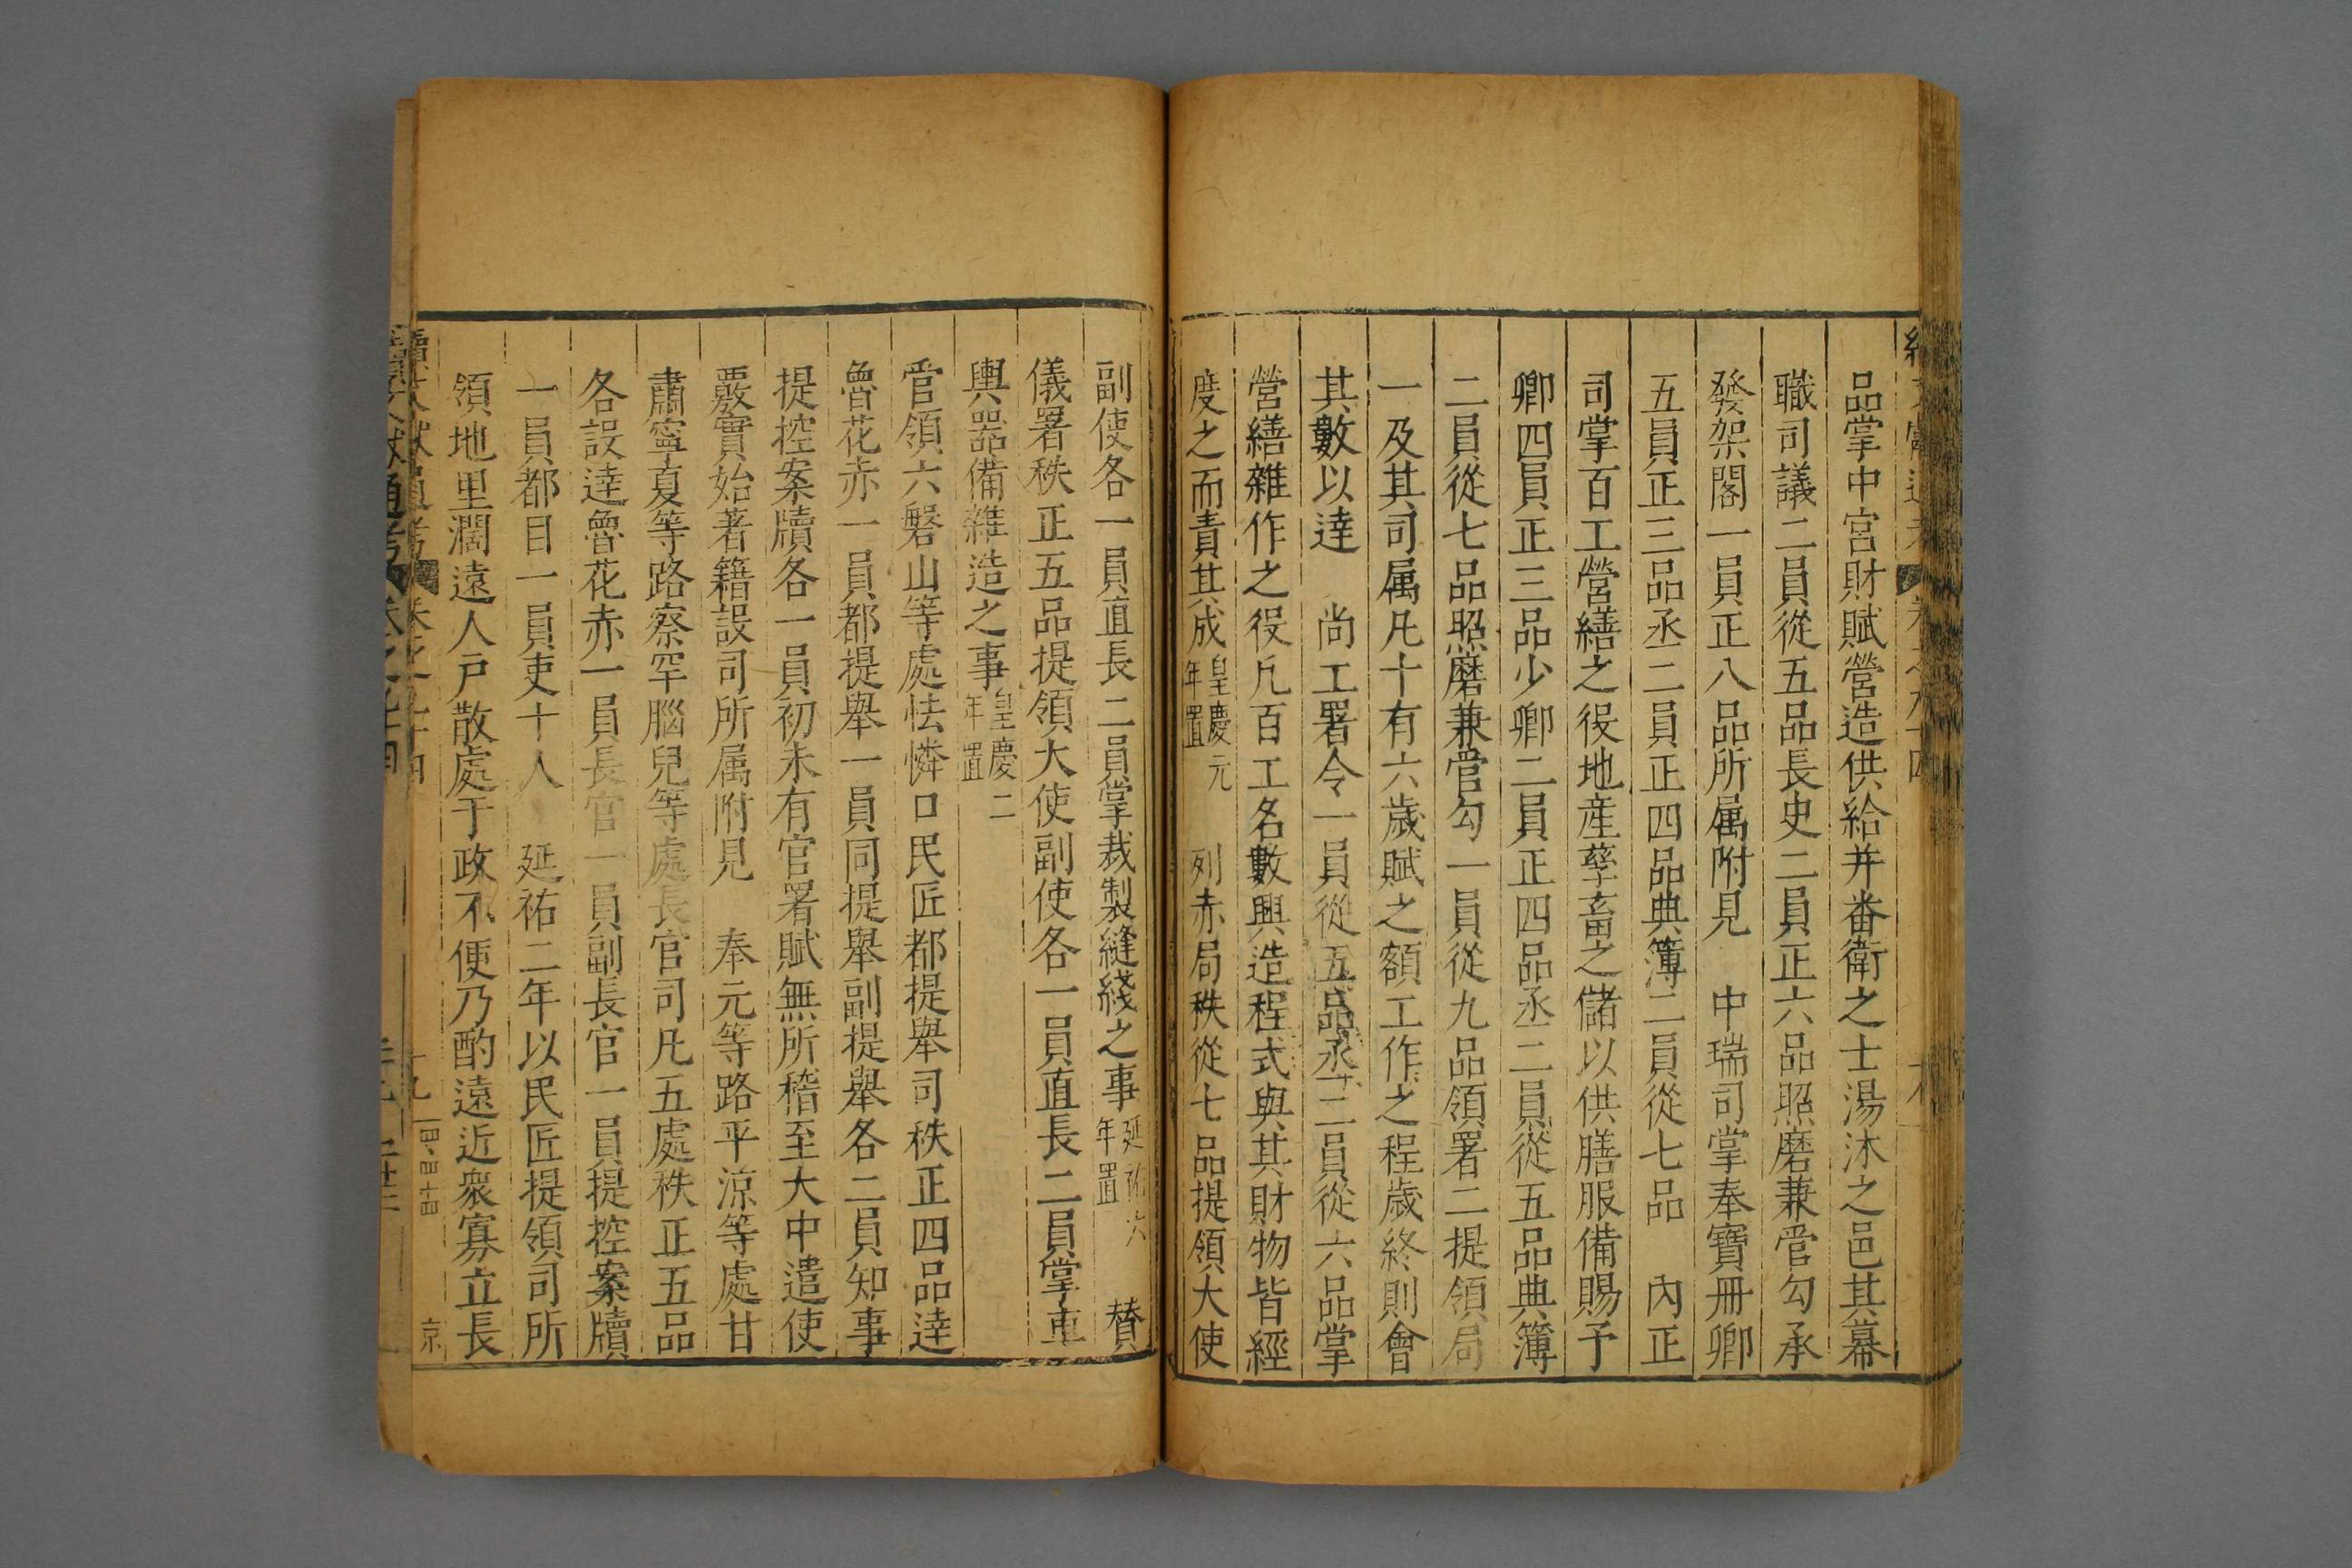 品掌中宮財賦營造供給并番衛之士湯沐之邑其幕
職司議二員從五品長史二員正六品照磨兼管勾承
發架閣一員正八品所属附見　中瑞司掌奉寶冊卿
五員正三品丞二員正四品典簿二員從七品　內正
司掌百工營繕之役地産孳畜之儲以供膳服備賜予
卿四員正三品少卿二員正四品丞二員從五品典簿
二員從七品照磨兼管勾一員從九品領署二提領局
一及其司属凡十有六歳賦之額工作之程歳終則會
其數以達　尚工署令一員從五品丞二員從六品掌
營繕雜作之役凡百工名數興造程式與其財物皆經
度之而責其成皇慶元年置　列赤局秩從七品提領大使
副使各一員直長二員掌裁製縫綫之事延祐六年置　賛
儀署秩正五品提領大使副使各一員直長二員掌車
輿器備雜造之事皇慶二年置
官領六磐山等處怯憐口民匠都提舉司秩正四品達
魯花赤一員都提舉一員同提舉副提舉各二員知事
提控案牘各一員初未有官署賦無所稽至大中遣使
覈實始著籍設司所属附見　奉元等路平涼等處甘
肅寧夏等路察罕腦兒等處長官司凡五處秩正五品
各設達魯花赤一員長官一員副長官一員提控案牘
一員都目一員吏十人　延祐二年以民匠提領司所
領地里濶遠人戸散處于政不便乃酌遠近衆寡立長